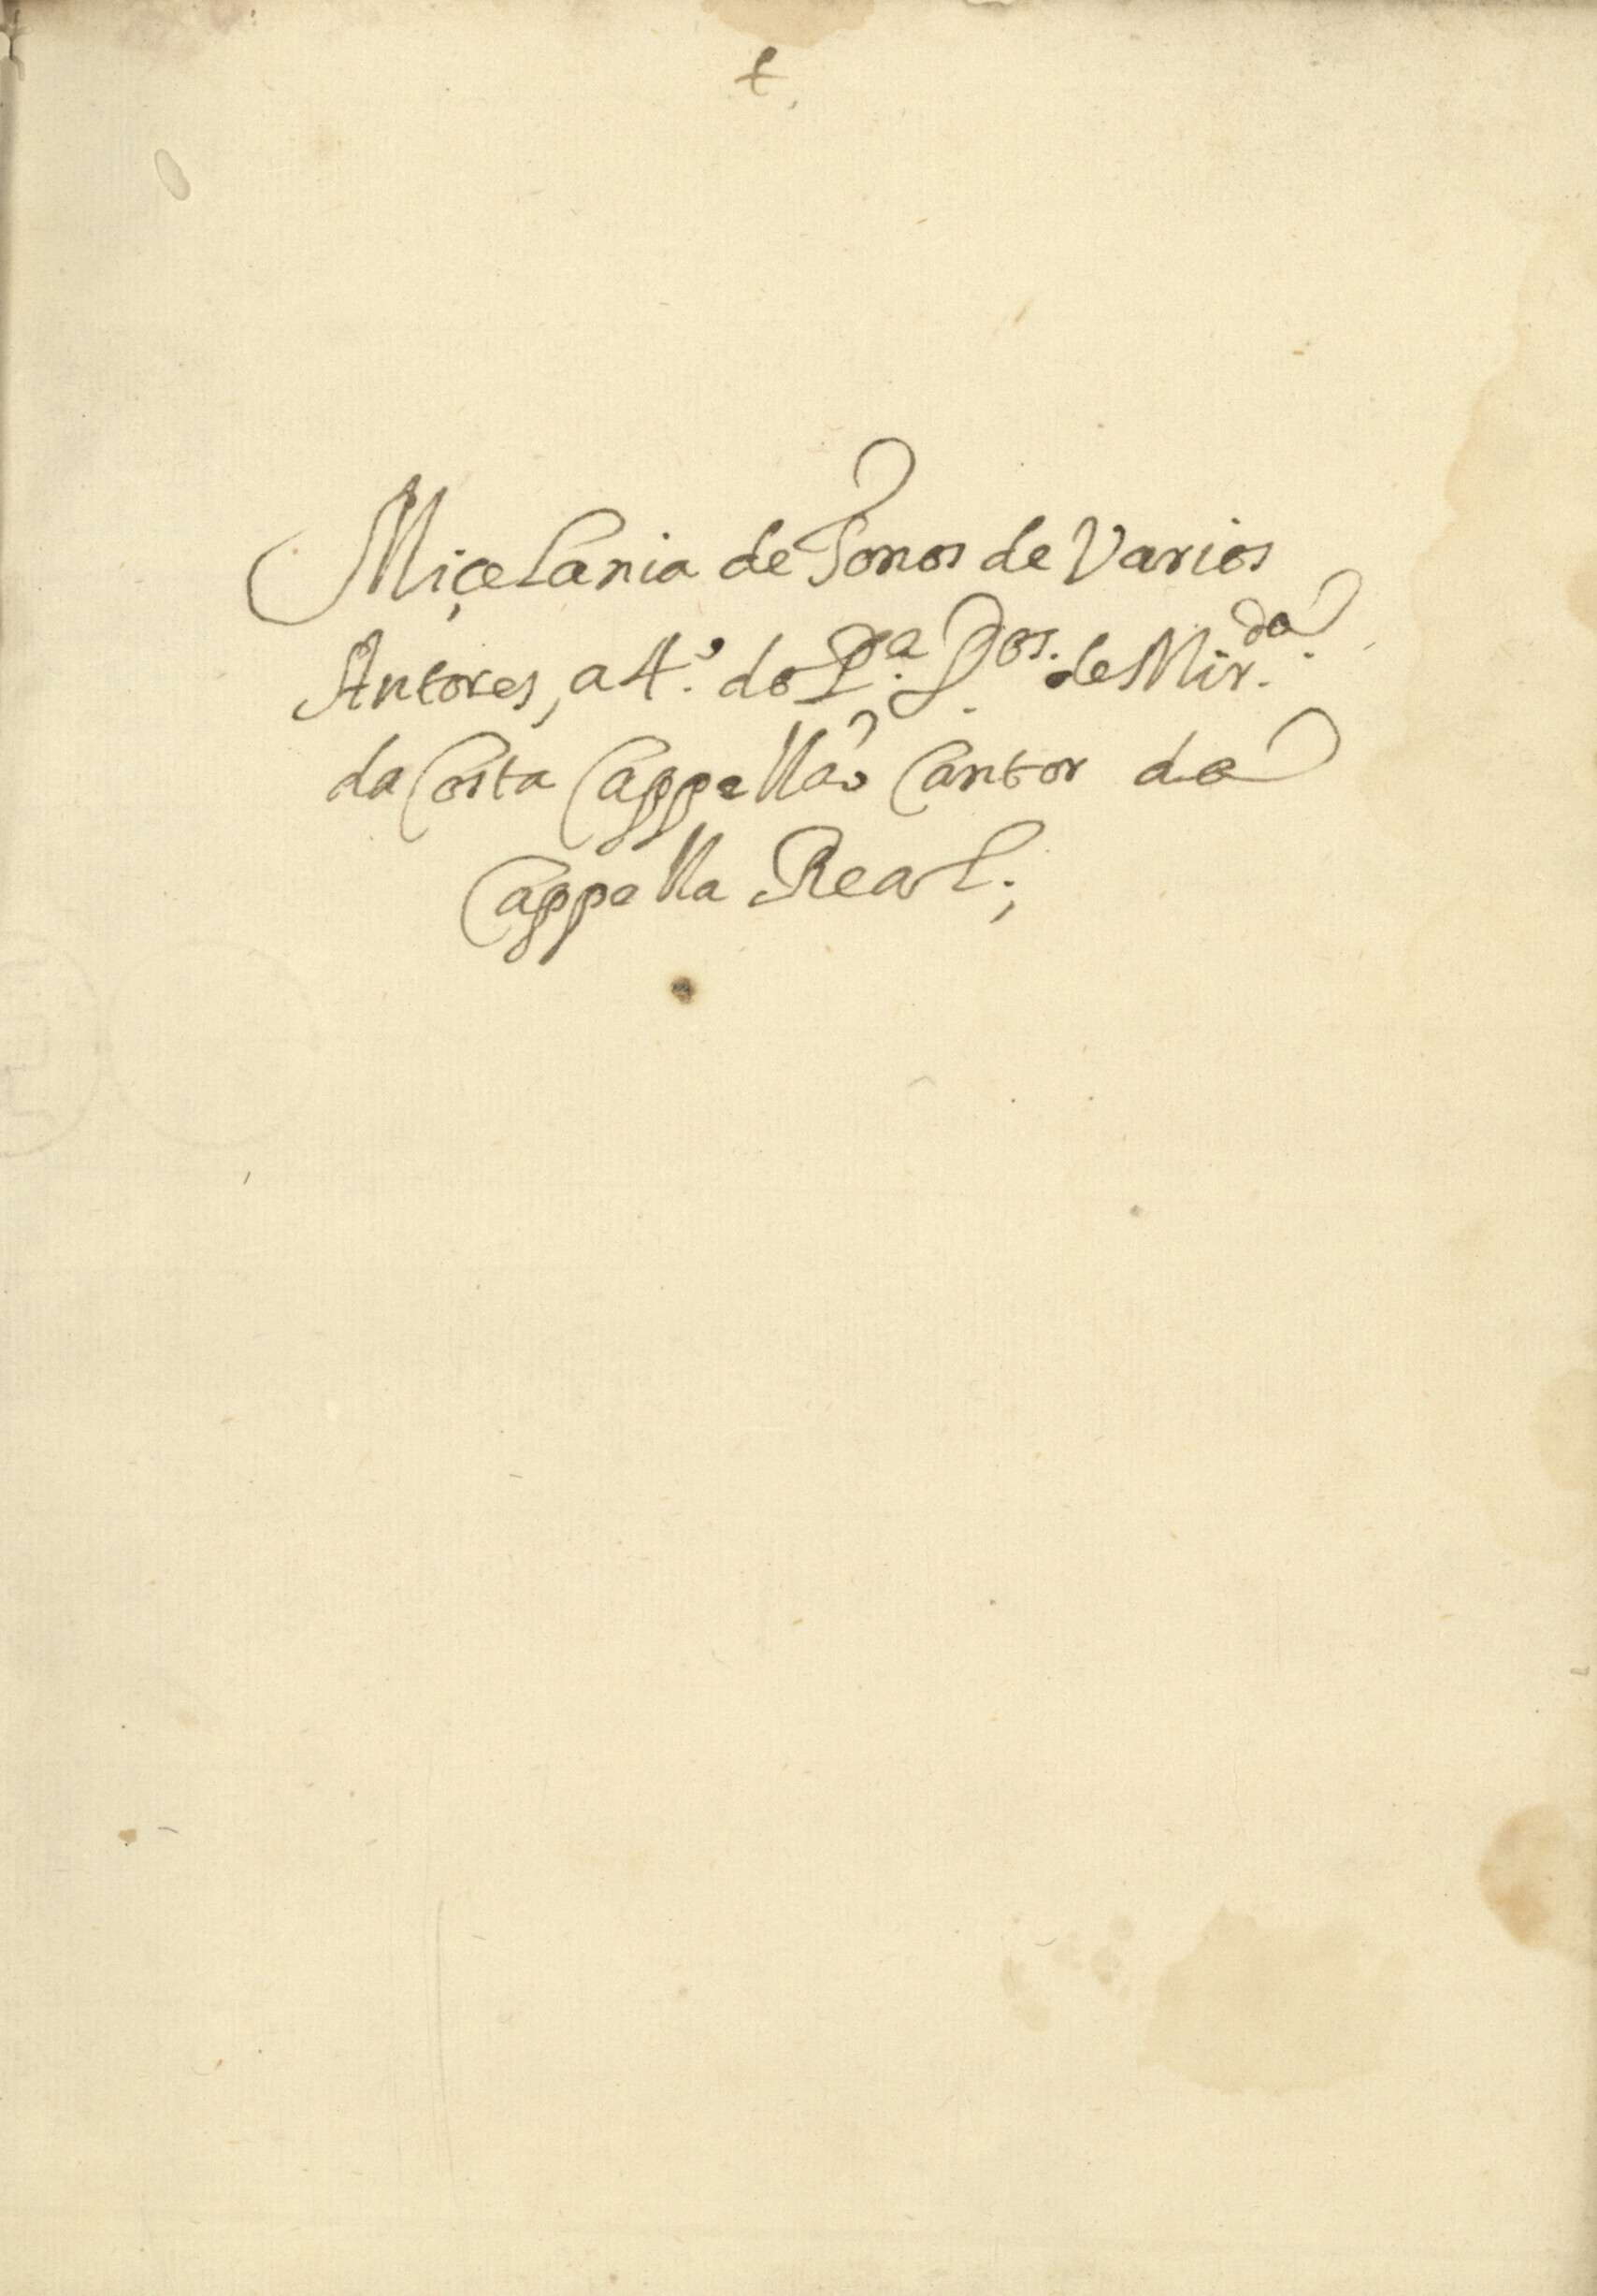 Miçelania de Tonos de Varios
Autores, a 4.º do P.ᵉ D.ᵒˢ de Mir.ᵈᵃ
da Costa Cappellaõ Cantor da
Cappella Real.;